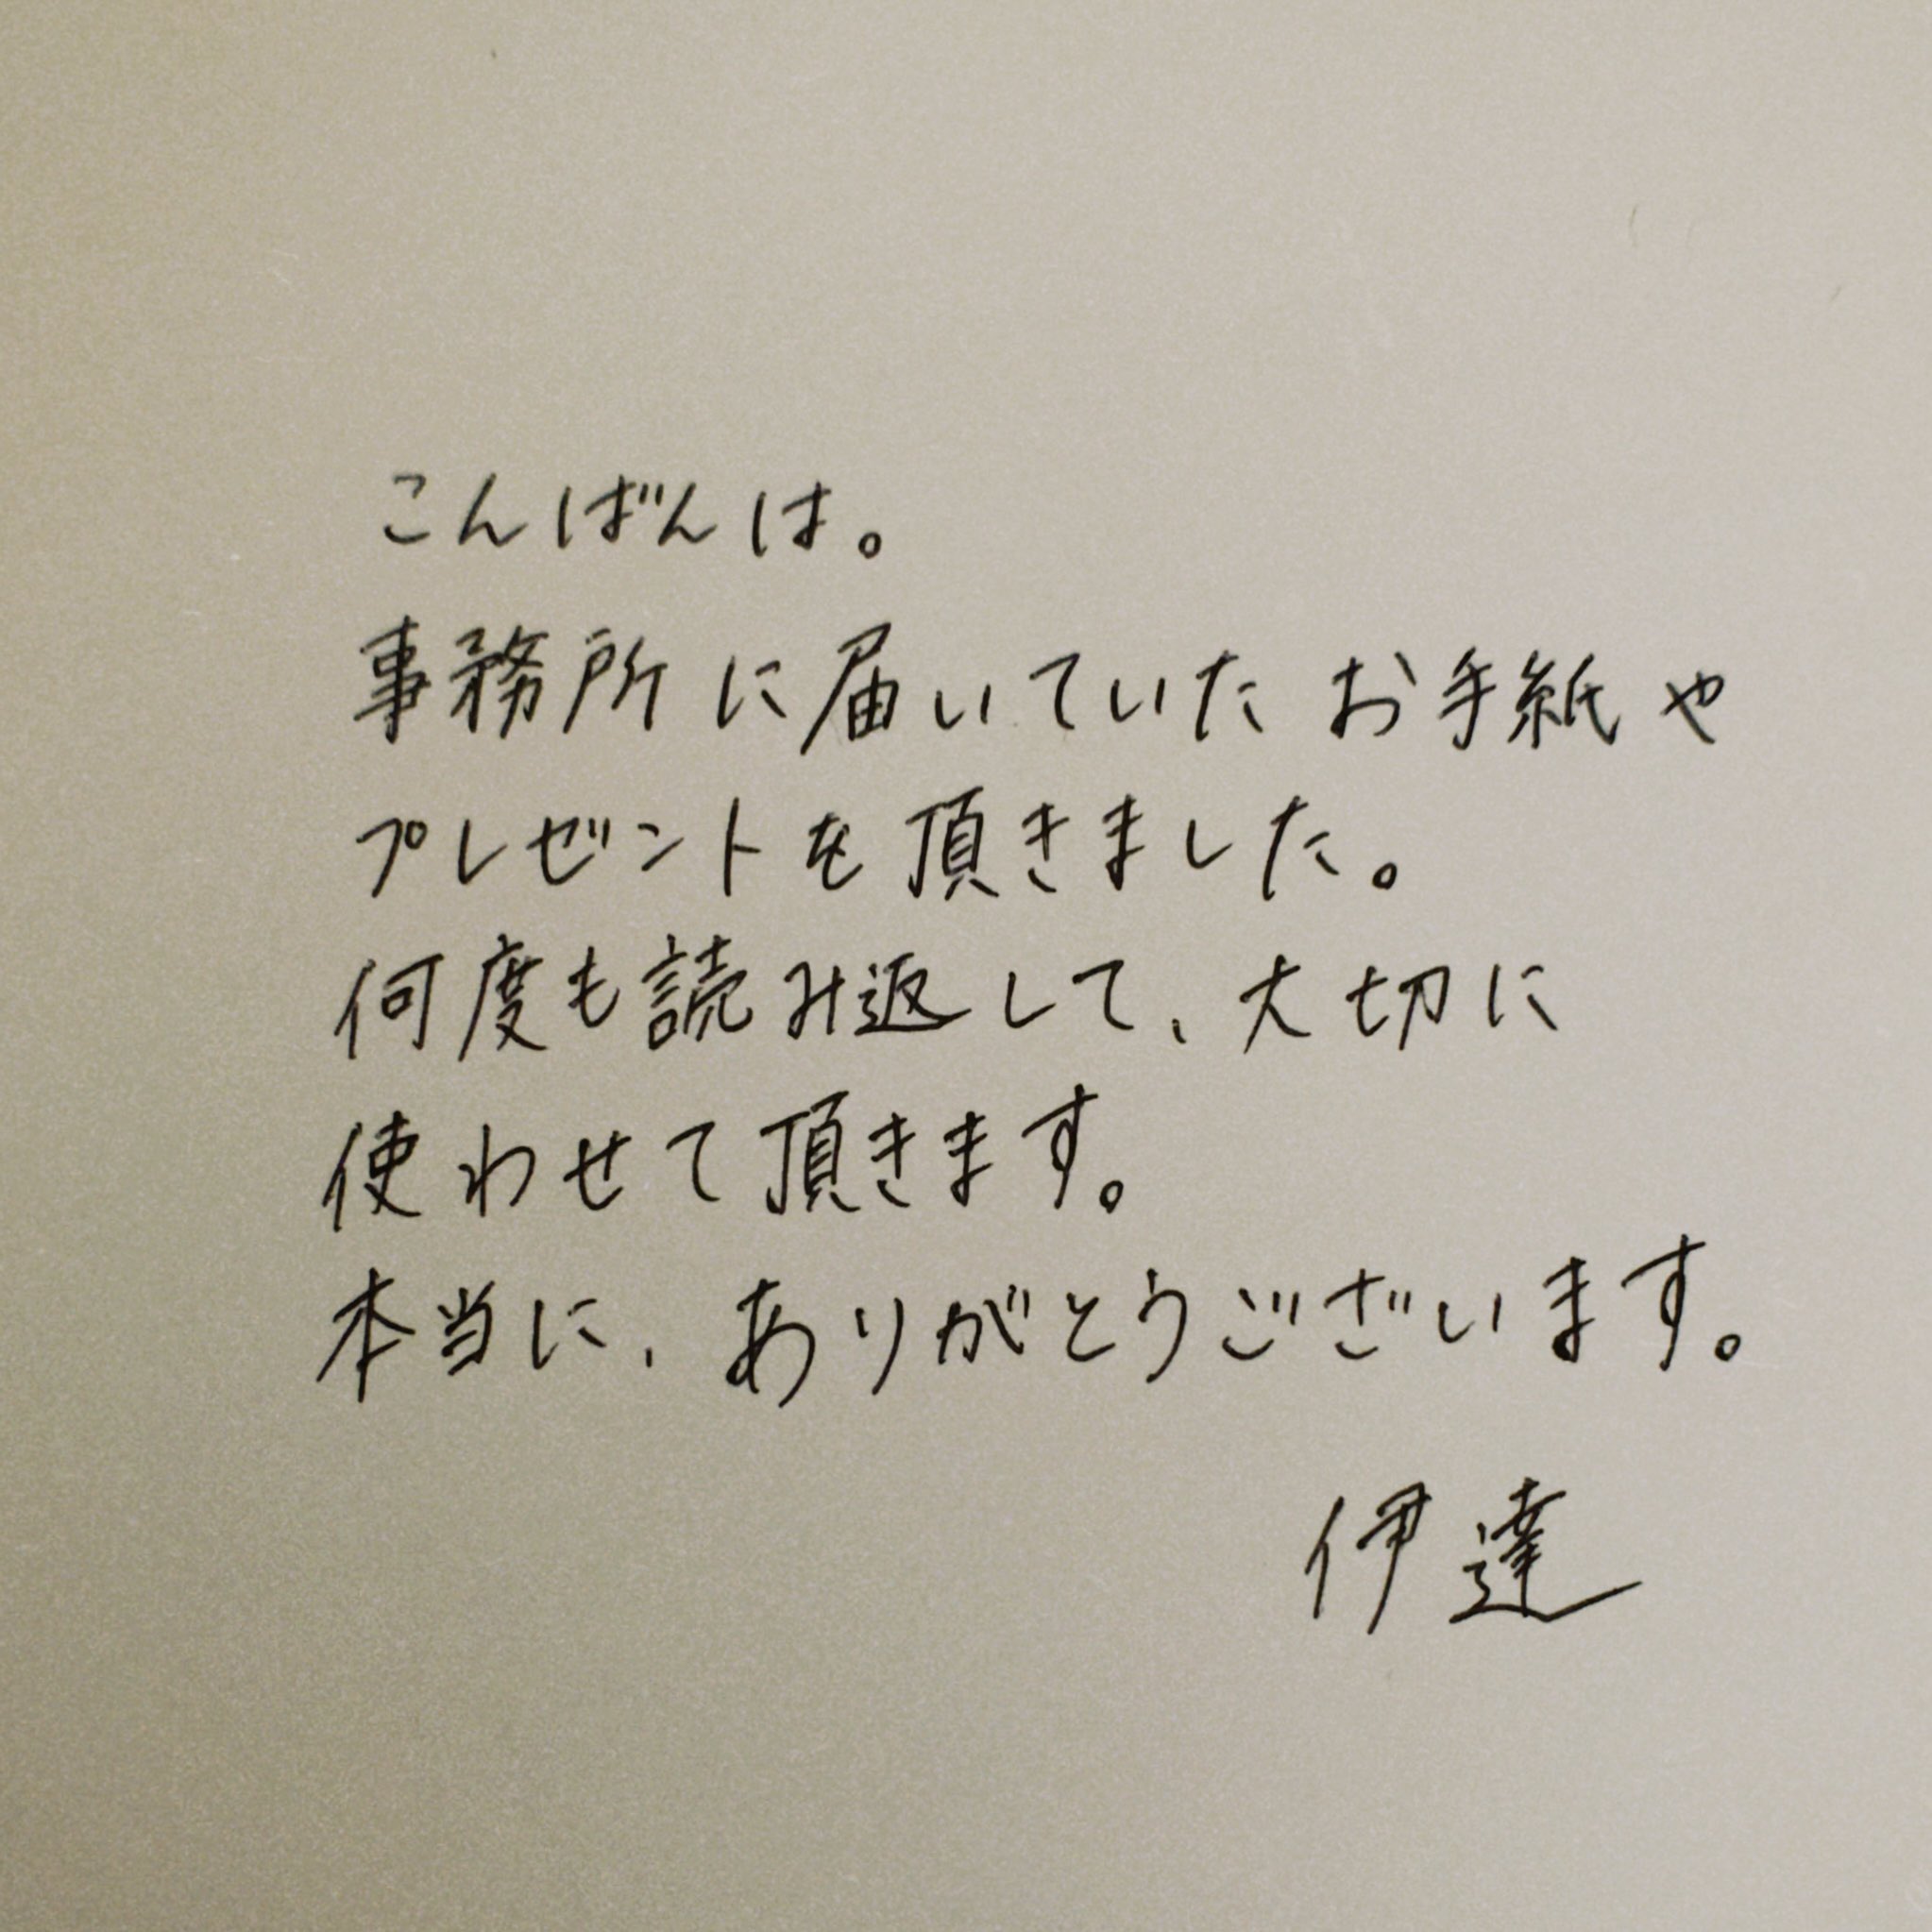 こんばんは。
事務所に届いていたお手紙や
プレゼントを頂きました。
何度も読み返して、大切に
使わせて頂きます。
本当に、ありがとうございます。
伊達